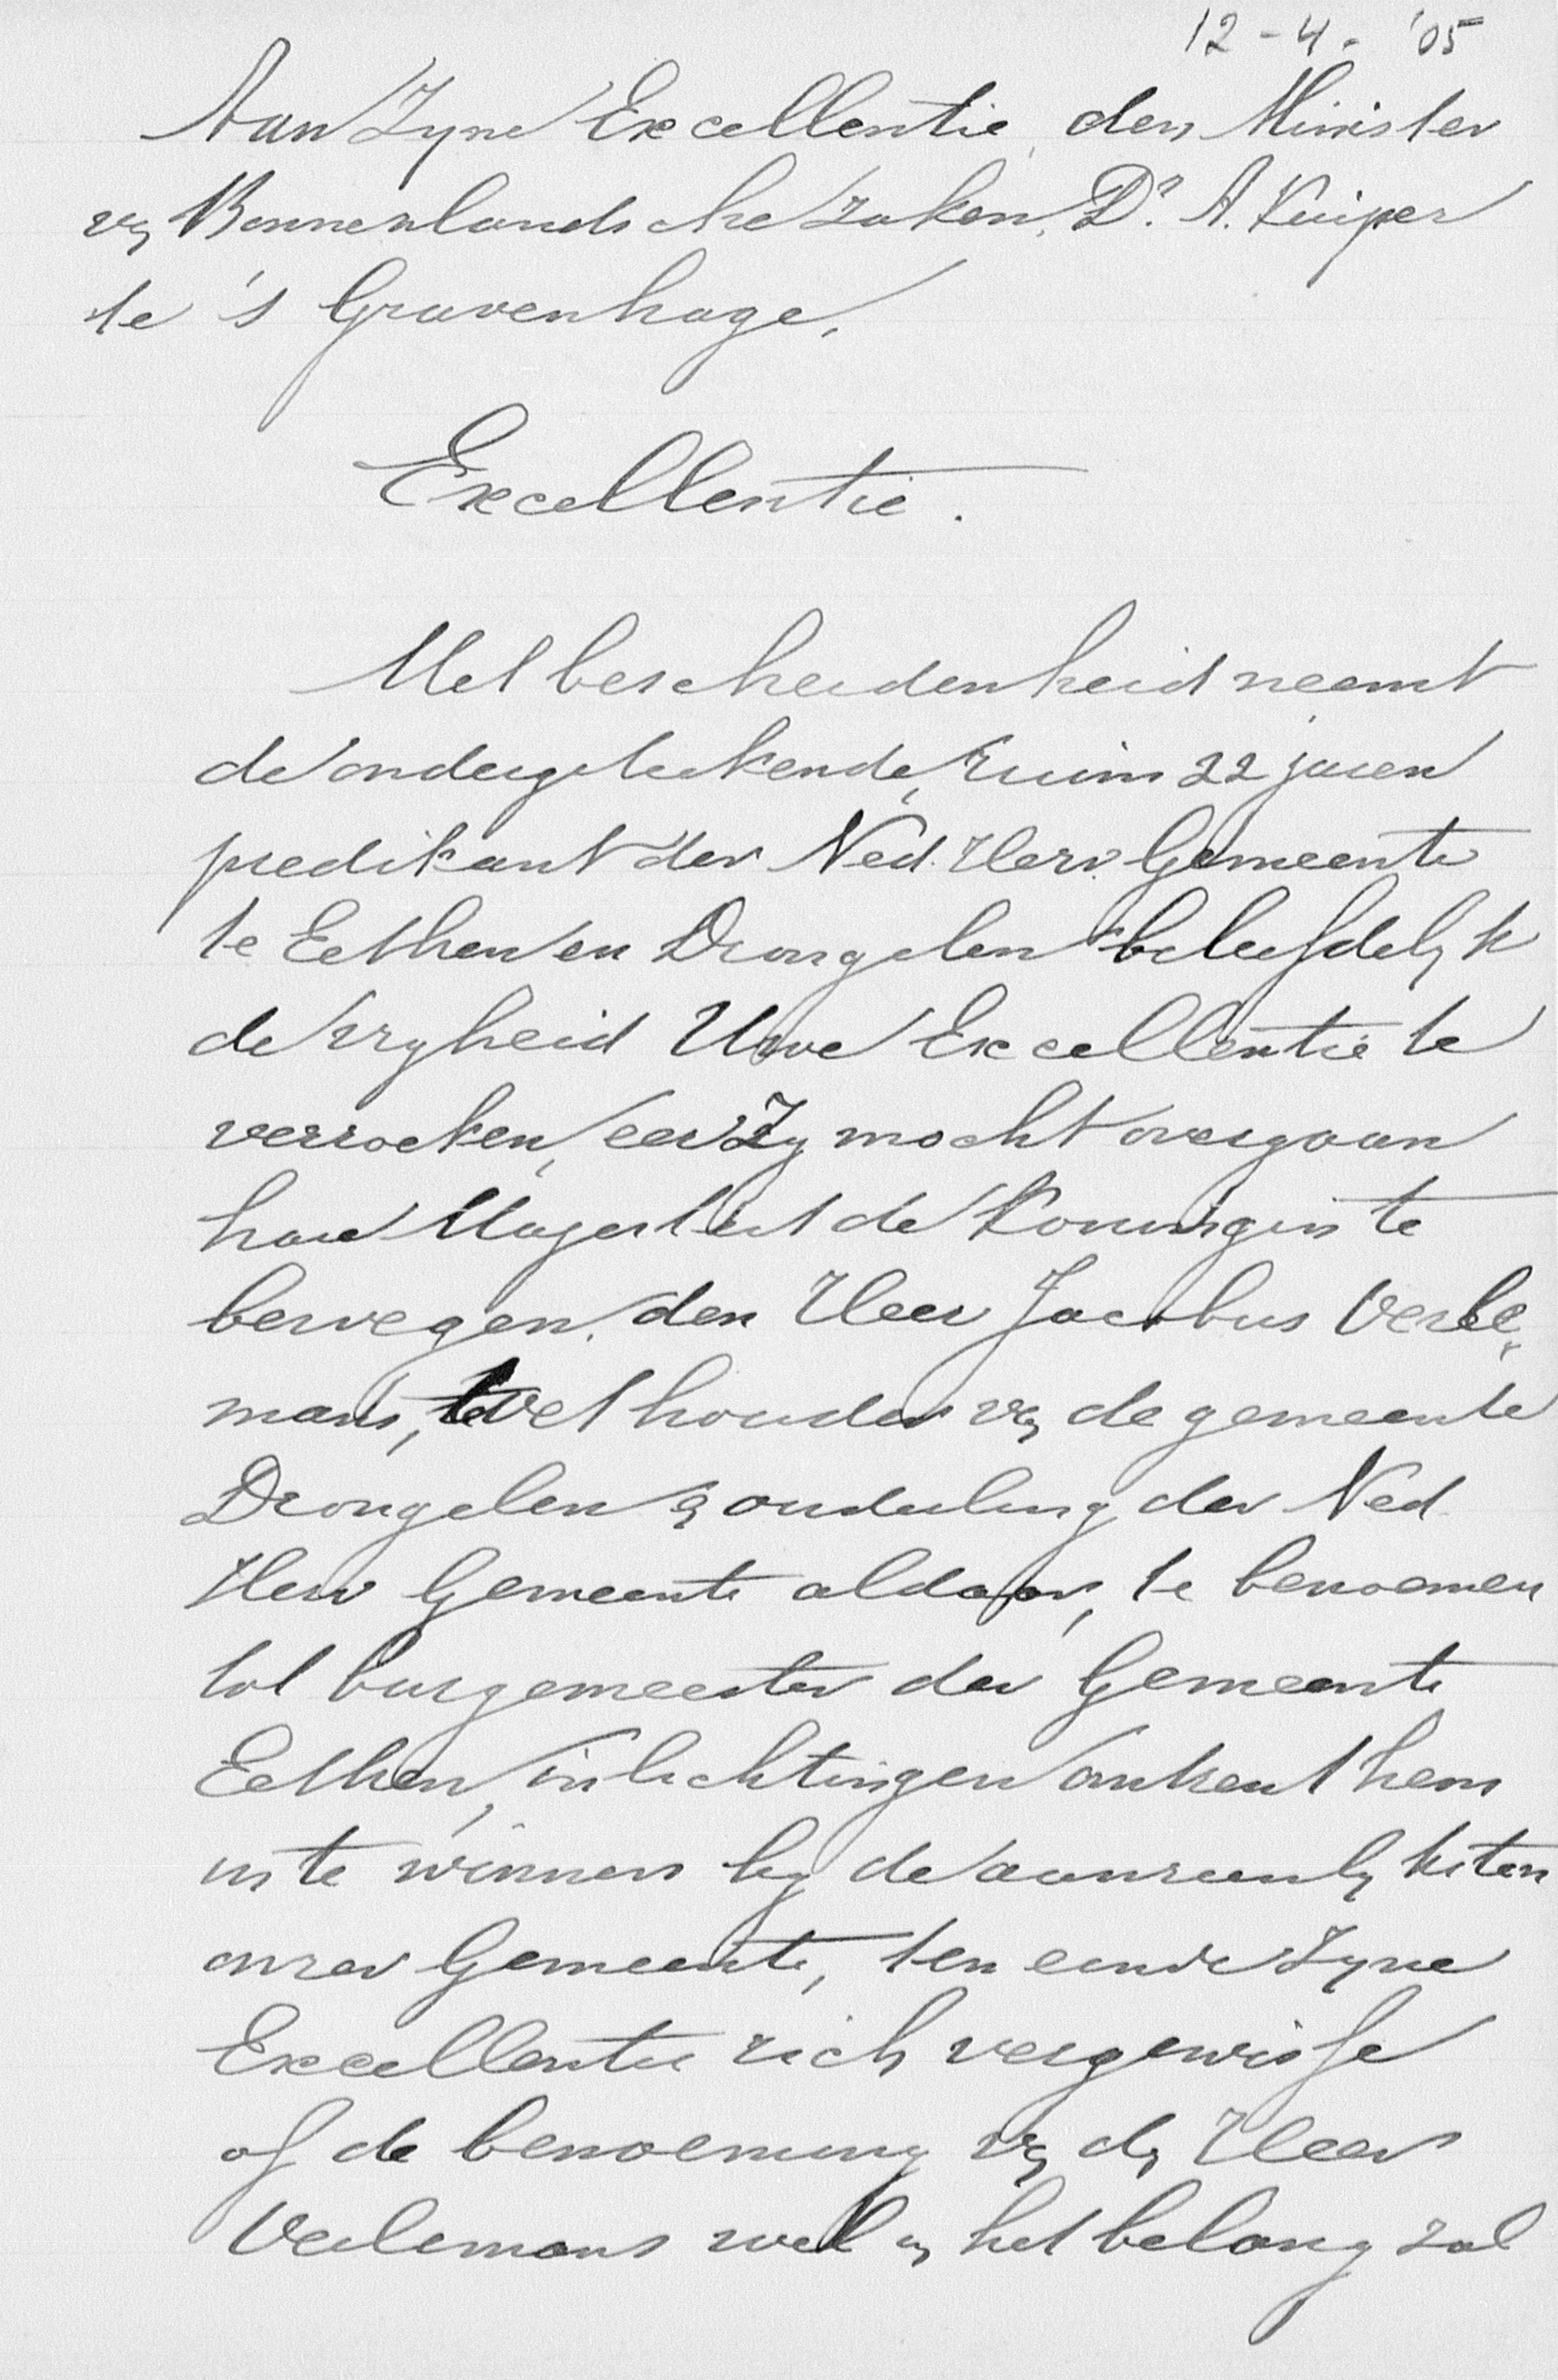 12-4-'05
Aan Zyne Excellentie, den Minister
vn Binnenlandsche zaken, Dr. A. Kuiper
te 's Gravenhage.
Excellentie.
Met bescheidenheid neemt
de ondergeteekende, ruim 22 jaren
predikant der Ned. Herv. Gemeente
te Eethen en Drongelen beleefdelyk
de vryheid Uwe Excellentie te
verzoeken, eer Zy mocht overgaan
hare Majesteit de Koningin te
bewegen, den Heer Jacobus Verle„
mans, wethouder vn de gemeente
Drongelen en ouderling der Ned.
Herv Gemeente aldaar, te benoemen
tot burgemeester der Gemeente
Eethen, inlichtingen omtrent hem
in te winnen by de aanzienlyksten
onzer Gemeente, ten einde Zyne
Excellentie zich vergewisse
of de benoeming vn dn Heer
Verlemans wel in het belang zal